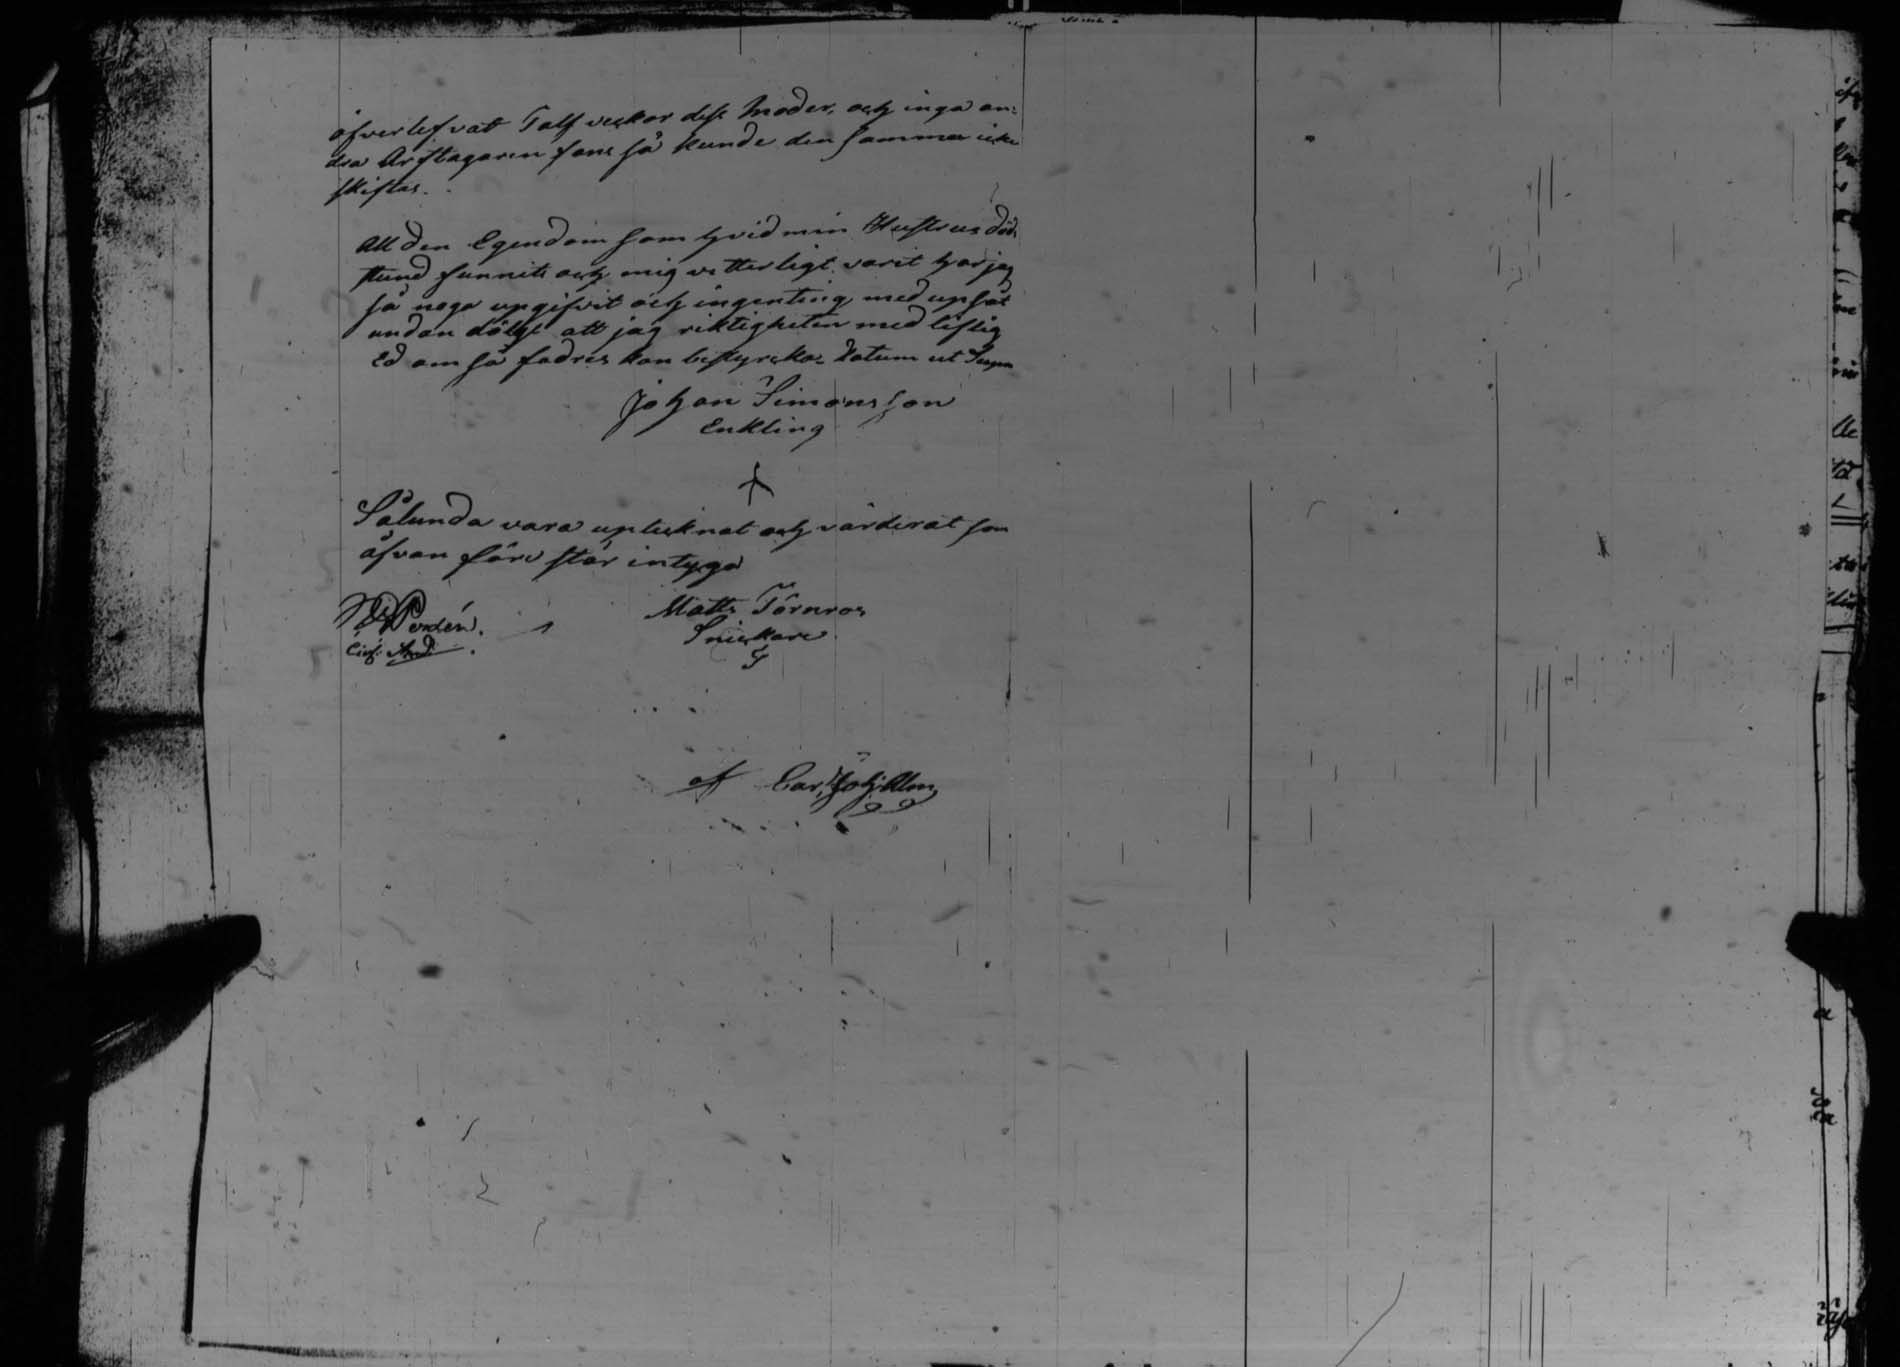 öfverlefvat Tolf veckor dess Moder, och inga an-
dra Arftagaren fans så kunde den samma icke
skiftas.
All den Egendom som hvid min Hustrus död-
stund funnits och mig vetterligt varit har jag
så noga upgifvit och ingenting med upsåt
undan dölgt att jag riktigheten med liflig
Ed om så fodres kan bestyrcka. Datum ut Supra
Johan Simonsson
Enkling
Sålunda vara uptecknat och värderat som
ofvan före står intyga
Matts Törnros
Snickare
af Carl Joh: Alm